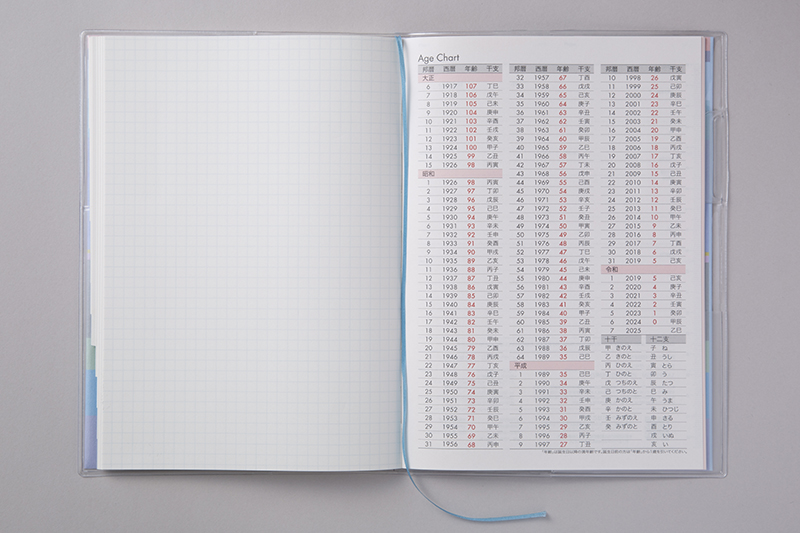 Age Chart
邦暦 西暦 年齢 干支
大正
6 1917 107 丁巳
7 1918 106 戊午
8 1919 105 己未
9 1920 104 庚申
10 1921 103 辛酉
11 1922 102 壬戌
12 1923 101 癸亥
13 1924 100 甲子
14 1925 99 乙丑
15 1926 98 丙寅
昭和
1 1926 98 丙寅
2 1927 97 丁卯
3 1928 96 戊辰
4 1929 95 己巳
5 1930 94 庚午
6 1931 93 辛未
7 1932 92 壬申
8 1933 91 癸酉
9 1934 90 甲戌
10 1935 89 乙亥
11 1936 88 丙子
12 1937 87 丁丑
13 1938 86 戊寅
14 1939 85 己卯
15 1940 84 庚辰
16 1941 83 辛巳
17 1942 82 壬午
18 1943 81 癸未
19 1944 80 甲申
20 1945 79 乙酉
21 1946 78 丙戌
22 1947 77 丁亥
23 1948 76 戊子
24 1949 75 己丑
25 1950 74 庚寅
26 1951 73 辛卯
27 1952 72 壬辰
28 1953 71 癸巳
29 1954 70 甲午
30 1955 69 乙未
31 1956 68 丙申
邦暦 西暦 年齢 干支
32 1957 67 丁酉
33 1958 66 戊戌
34 1959 65 己亥
35 1960 64 庚子
36 1961 63 辛丑
37 1962 62 壬寅
38 1963 61 癸卯
39 1964 60 甲辰
40 1965 59 乙巳
41 1966 58 丙午
42 1967 57 丁未
43 1968 56 戊申
44 1969 55 己酉
45 1970 54 庚戌
46 1971 53 辛亥
47 1972 52 壬子
48 1973 51 癸丑
49 1974 50 甲寅
50 1975 49 乙卯
51 1976 48 丙辰
52 1977 47 丁巳
53 1978 46 戊午
54 1979 45 己未
55 1980 44 庚申
56 1981 43 辛酉
57 1982 42 壬戌
58 1983 41 癸亥
59 1984 40 甲子
60 1985 39 乙丑
61 1986 38 丙寅
62 1987 37 丁卯
63 1988 36 戊辰
64 1989 35 己巳
平成
1 1989 35 己巳
2 1990 34 庚午
3 1991 33 辛未
4 1992 32 壬申
5 1993 31 癸酉
6 1994 30 甲戌
7 1995 29 乙亥
8 1996 28 丙子
9 1997 27 丁丑
邦暦 西暦 年齢 干支
10 1998 26 戊寅
11 1999 25 己卯
12 2000 24 庚辰
13 2001 23 辛巳
14 2002 22 壬午
15 2003 21 癸未
16 2004 20 甲申
17 2005 19 乙酉
18 2006 18 丙戌
19 2007 17 丁亥
20 2008 16 戊子
21 2009 15 己丑
22 2010 14 庚寅
23 2011 13 辛卯
24 2012 12 壬辰
25 2013 11 癸巳
26 2014 10 甲午
27 2015 9 乙未
28 2016 8 丙申
29 2017 7 丁酉
30 2018 6 戊戌
31 2019 5 己亥
令和
1 2019 5 己亥
2 2020 4 庚子
3 2021 3 辛丑
4 2022 2 壬寅
5 2023 1 癸卯
6 2024 0 甲辰
7 2025 乙巳
十干 十二支
甲 きのえ 子 ね
乙 きのと 丑 うし
丙 ひのえ 寅 とら
丁 ひのと 卯 う
戊 つちのえ 辰 たつ
己 つちのと 巳 み
庚 かのえ 午 うま
辛 かのと 未 ひつじ
壬 みずのえ 申 さる
癸 みずのと 酉 とり
戌 いぬ
亥 い